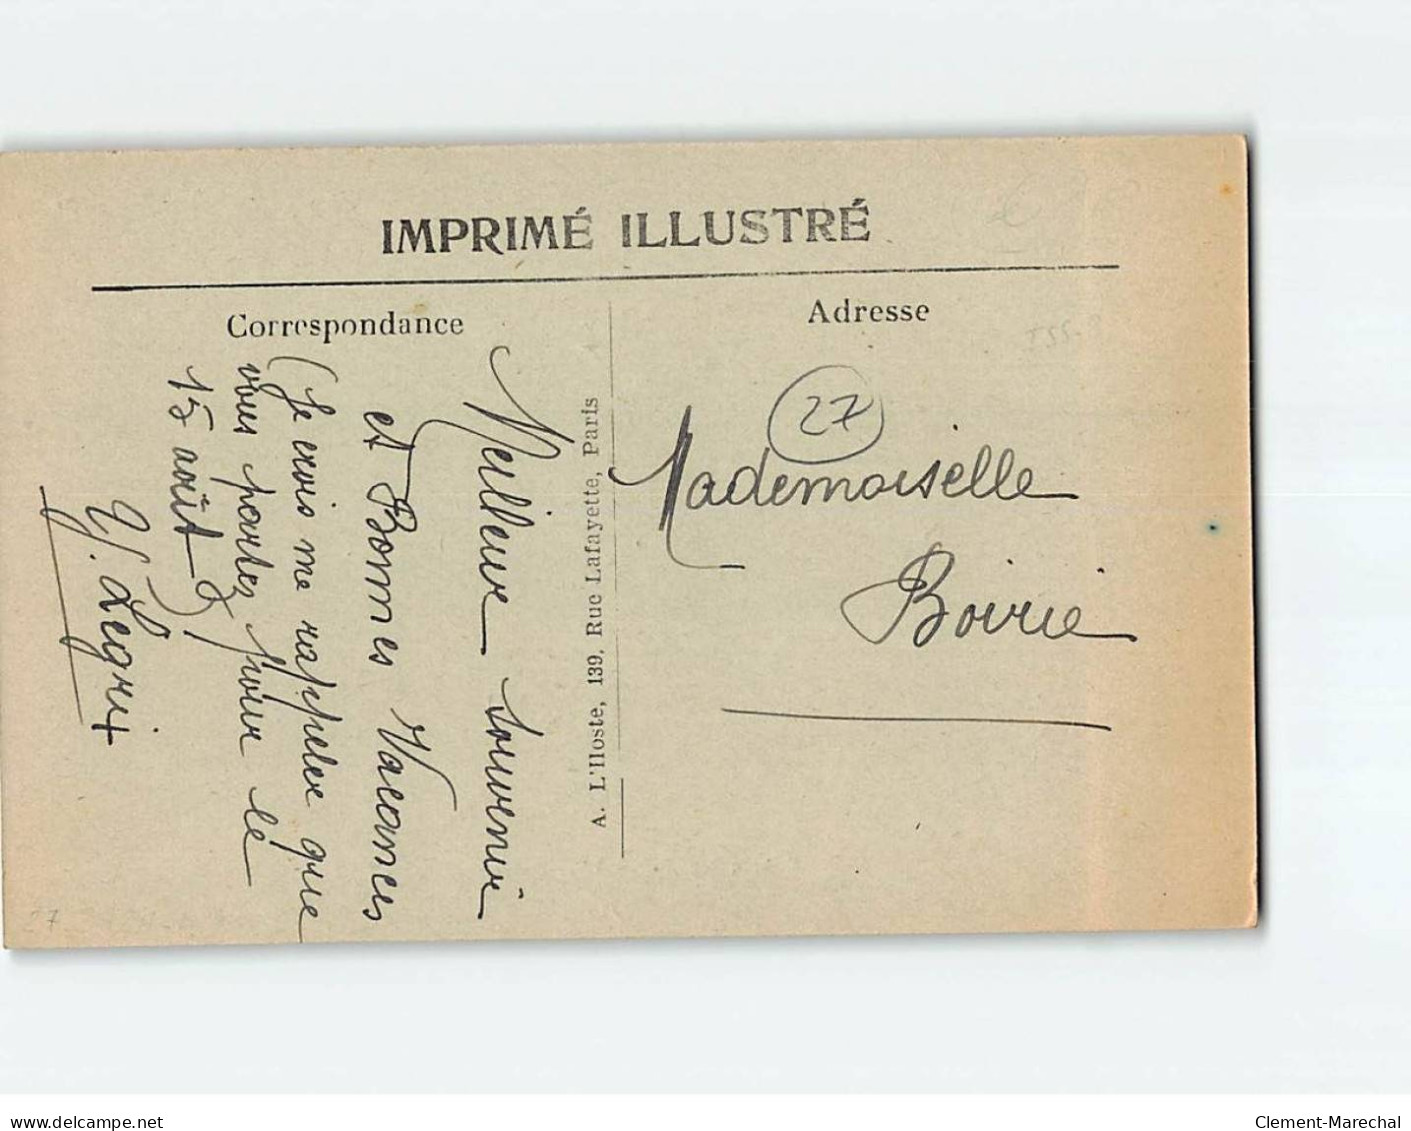 IMPRIMÉ ILLUSTRÉ
Correspondance
Adresse
Meilleur souvenir
et Bonnes Vacances
(Je crois me rappeler que
vous partez pour le
15 août)
Y. Legrix
A. L'Hoste, 139, Rue Lafayette, Paris
27
Mademoiselle
Boirie
27
www.delcampe.net
Clement-Marechal